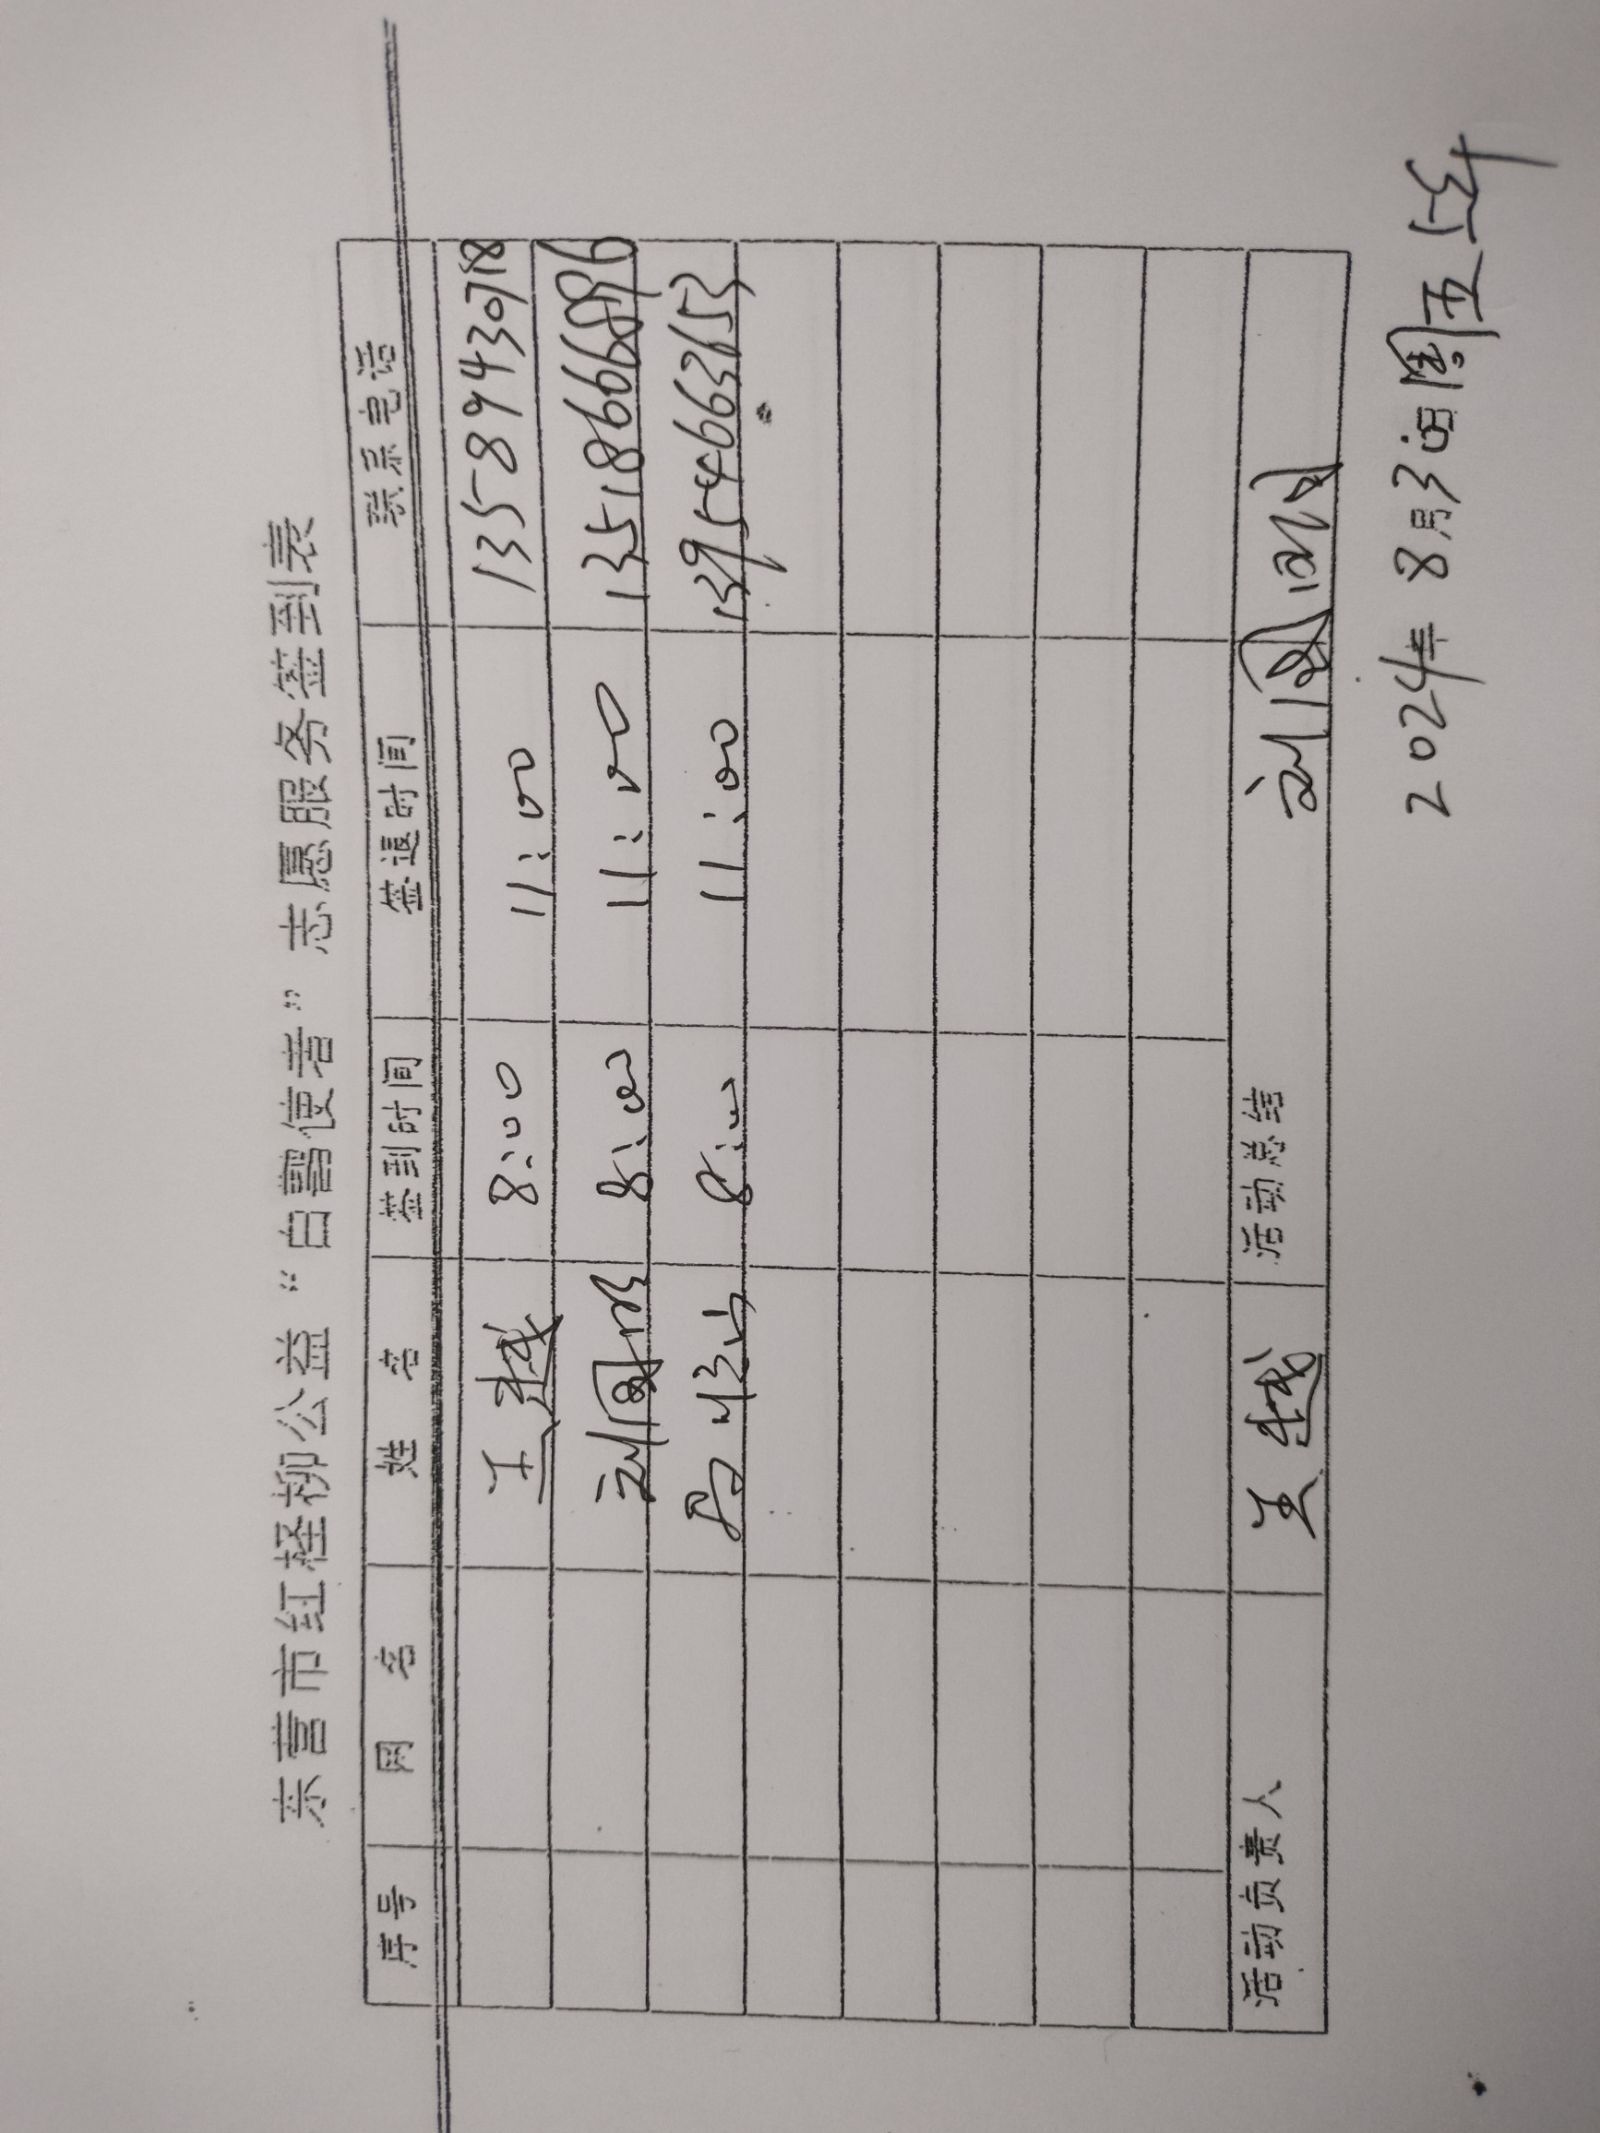 东营市红柽柳公益“白鹭使者”志愿服务签到表
序号 网 名 姓 名 签到时间 签退时间 联系电话
王越 8:00 11:00 13589430718
刘国明 8:00 11:00
8:00 11:00 13954663653
活动负责人 王越 活动总结 刘国明
2024年8月30日周五上午